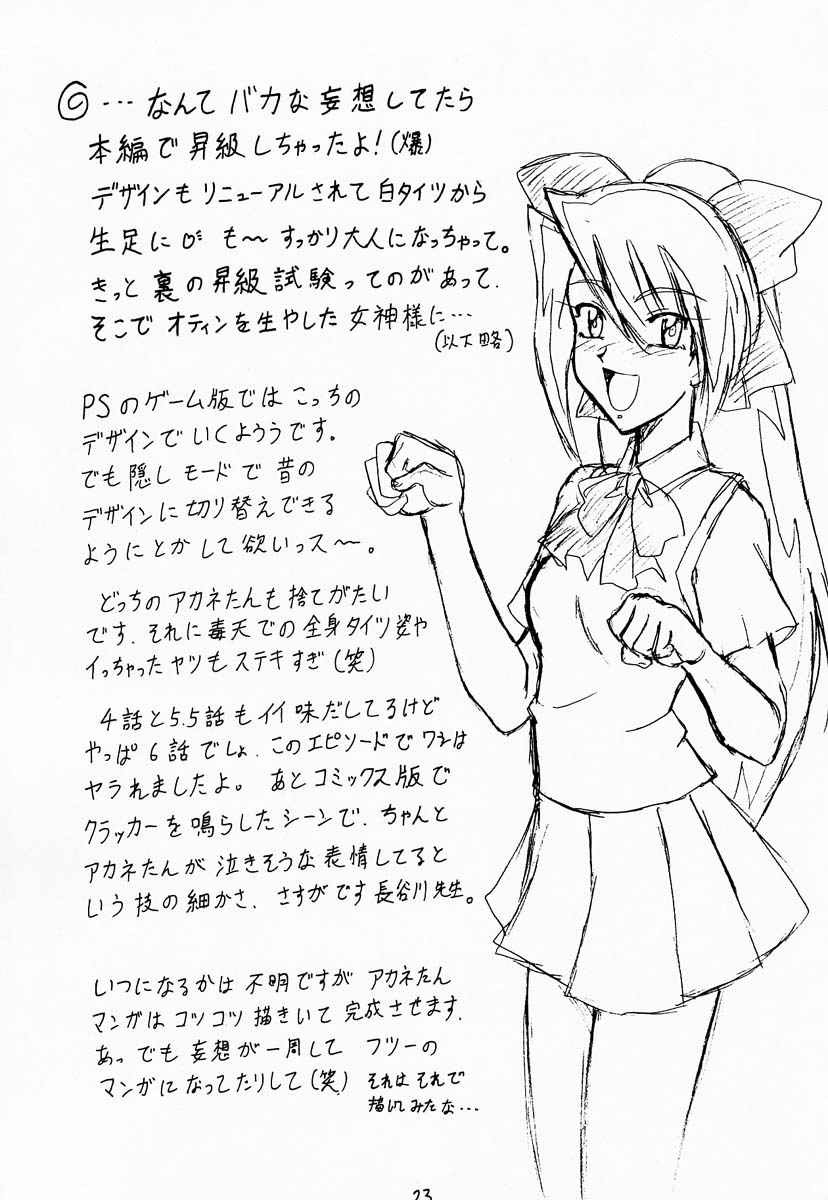 …なんて バカな妄想してたら
本編で昇級しちゃったよ!(爆)
デザインもリニューアルされて白タイツから
生足に も〜すっかり大人になっちゃって。
きっと裏の昇級試験ってのがあって、
そこで オティンを生やした女神様に…
(以下略)
PSのゲーム版ではこっちの
デザインでいくようようです。
でも隠しモードで昔の
デザインに切り替えできる
ようにとかして欲いっス〜。
どっちのアカネたんも捨てがたい
です、それに毒天での全身タイツ姿や
イっちゃったヤツもステキすぎ(笑)
4話と5.5話もイイ味だしてるけど
やっぱ6話でしょ、このエピソードでワシは
ヤラれましたよ。あとコミックス版で
クラッカーを鳴らしたシーンで、ちゃんと
アカネたんが泣きそうな表情してると
いう技の細かさ、さすがです長谷川先生。
いつになるかは不明ですがアカネたん
マンガはコツコツ描きいて完成させます、
あっでも妄想が一周してフツーの
マンガになってたりして(笑)
それはそれで
描いてみたな…
23